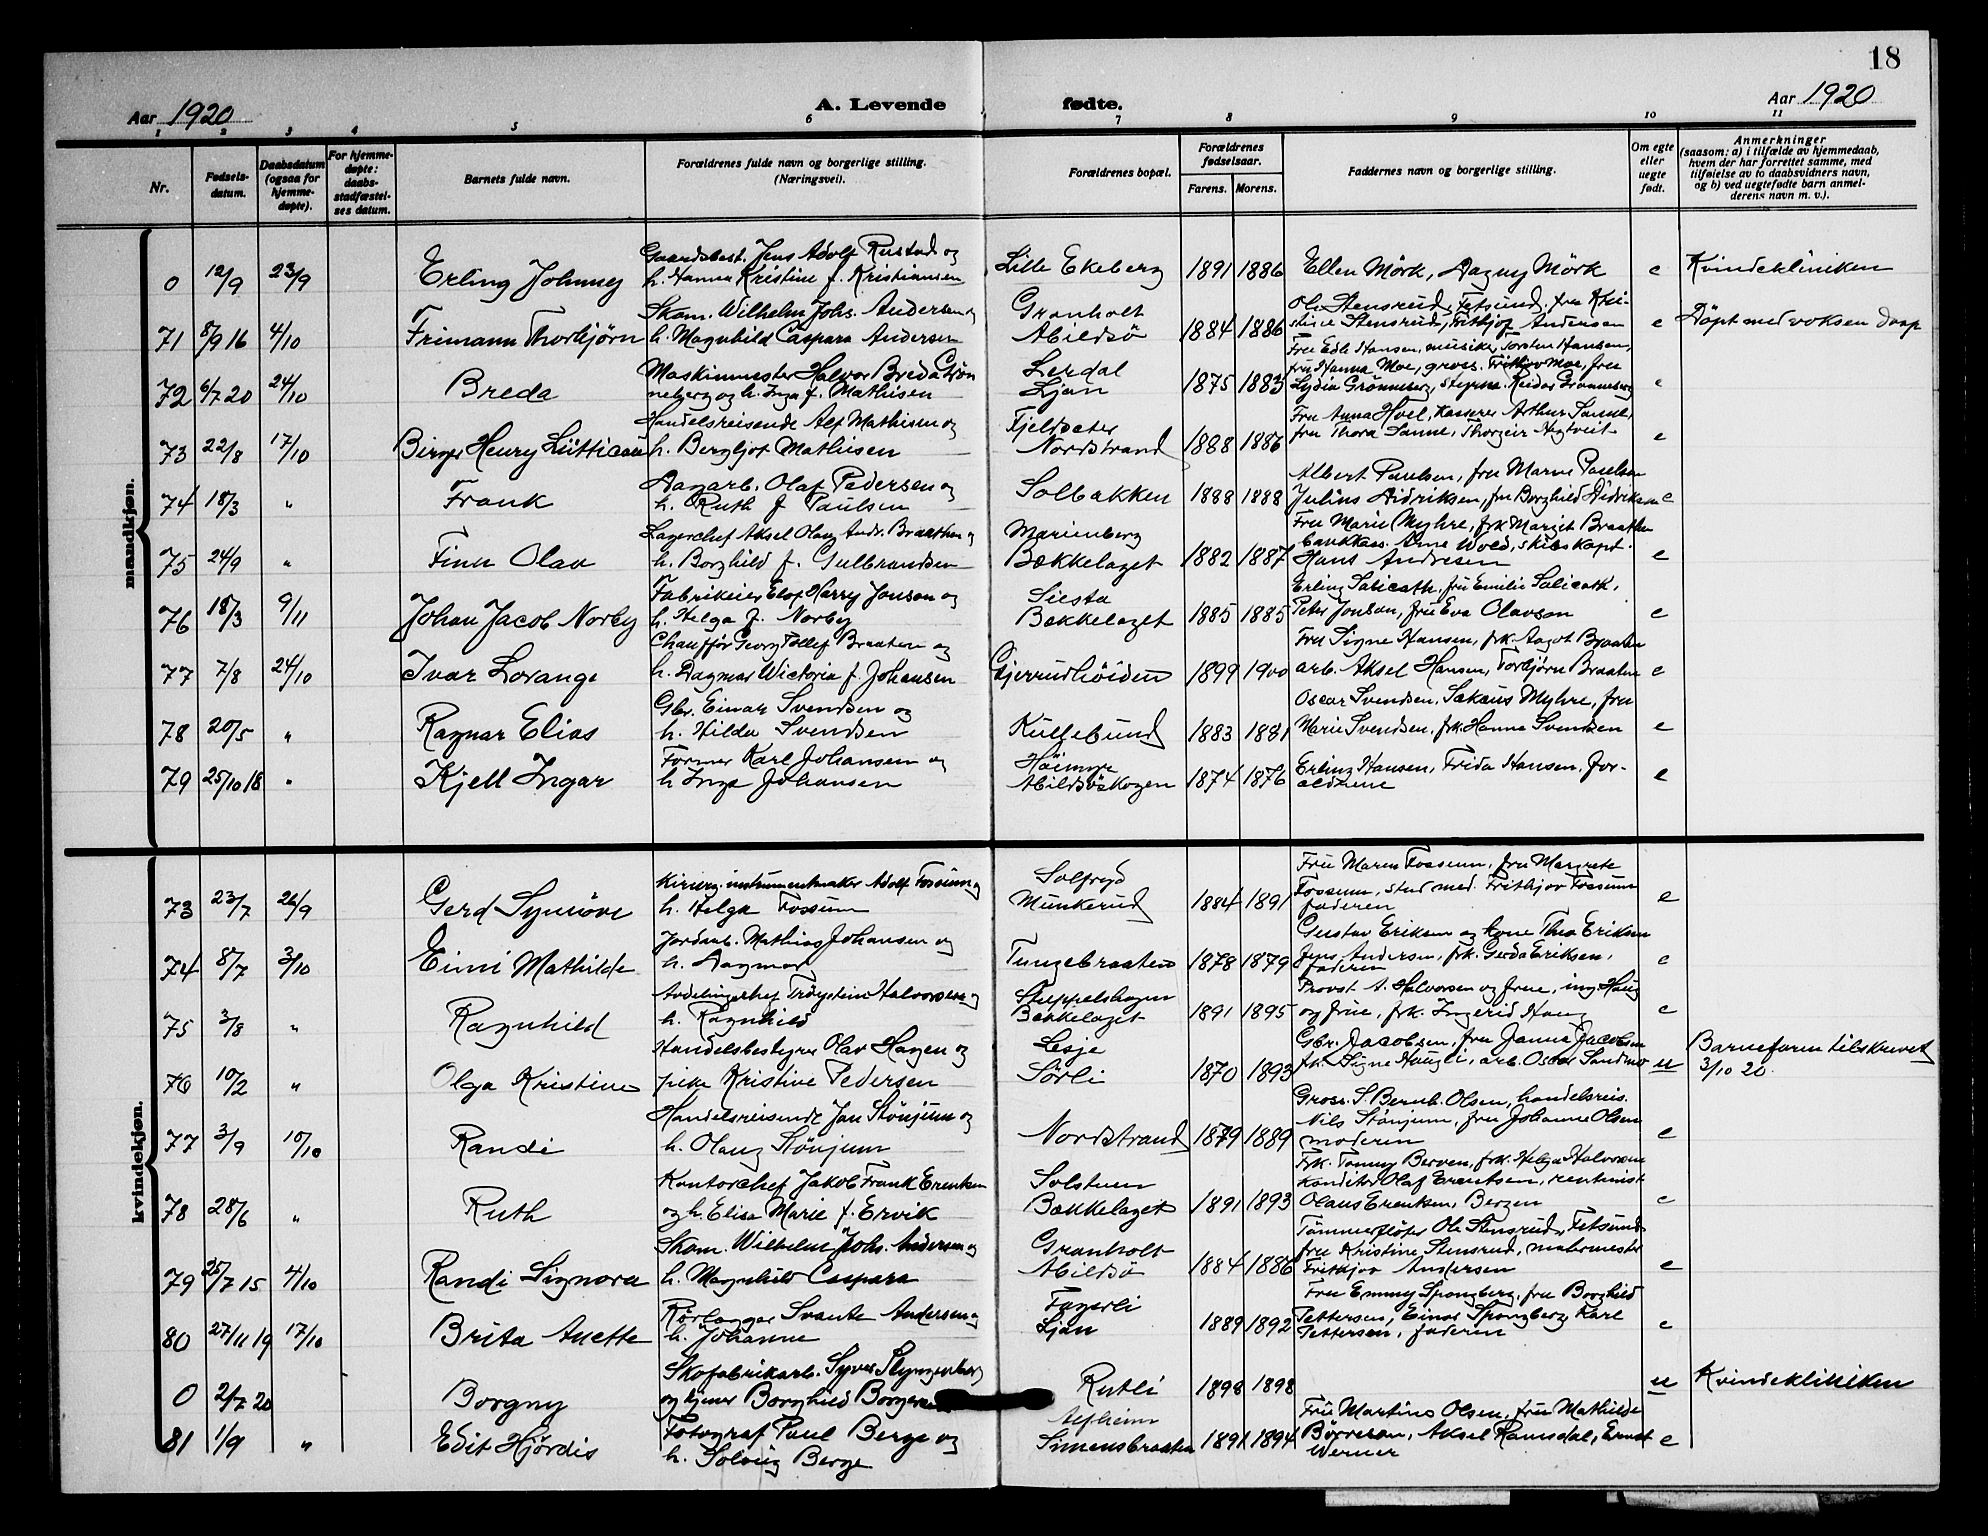 18
Aar 1920
A. Levende fødte.
Aar 1920
1 2 3 4 5 6 7 8 9 10 11
Nr.
Fødsels-
datum.
Daabsdatum
(ogsaa for
hjemme-
døpte).
For hjemme-
døpte:
daabs-
stadfæstel-
ses datum.
Barnets fulde navn.
Forældrenes fulde navn og borgerlige stilling.
(Næringsvei).
Forældrenes bopæl.
Forældrenes
fødselsaar.
Farens. Morens.
Faddernes navn og borgerlige stilling.
Om egte
eller
uegte
født.
Anmerkninger
(saasom: a) i tilfælde av hjemmedaab,
hvem der har forrettet samme, med
tilføielse av to daabsvidners navn,
og b) ved uegtefødte barn anmel-
derens navn m. v.).
mandkjøn.
0 12/9 23/9 Erling Johnny
Gaardsbest. Jens Adolf Rustad og
h. Hanna Kristine f. Kristiansen
Lille Ekeberg 1891 1886
Ellen Mörk, Dagny Mörk e Kvindekliniken
71 8/9 16 4/10 Frimann Thorbjørn
Skom. Wilhelm Johs. Andersen og
h. Magnhild Caspara Andersen
Granholt
Abildsö 1884 1886
Ole Stensrud, Fetsund, fru Kri-
stine Stensrud, Frithjof Andersen e Döpt med voksen daap
72 6/7 20 24/10 Breda
Maskinmester Halvor Breda Grön
neberg og h. Inga f. Mathisen
Lerdal
Ljan 1875 1883
Fru Edle Hansen, musiker Torsten Hansen,
fru Hanna Moe, gross. Frithjov Moe, fru
Lydia Grönneberg, styrm. Reidar Grönneberg e
73 22/8 17/10 Birger Henry Lütticau
Handelsreisende Alf Mathisen og
h. Bergljot Mathisen
Fjeldseter
Nordstrand 1888 1886
Fru Anna Hoel, kasserer Arthur Sanne,
fru Thora Sanne, Thorgeir Aztveit e
74 18/3 " Frank
Dagarb. Olaf Pedersen og
h. Ruth f Paulsen
Solbakken 1888 1888
Albert Paulsen, fru Marne Paulsen
Julius Didriksen, fru Borghild Didriksen e
75 24/9 " Finn Olav
Lagerchef Aksel Olaug Andr. Braathen og
h. Borghild f. Gulbrandsen
Marienberg
Bækkelaget 1882 1887
Fru Marie Myhre, frk Margit Braathen
bankkass. Arne Wold, skibskapt.
Hans Andresen e
76 18/3 9/11 Johan Jacob Norby
Fabrikeier Elof Harry Jonson og
h. Helga f. Norby
Siesta
Bækkelaget 1885 1885
Erling Salicath, fru Emilie Salicath,
Peter Jonson, fru Eva Olavson e
77 7/8 24/10 Ivar Lorange
Chaufför Georg Tollef Braaten og
h. Dagmar Wictoria f. Johansen
Gjerrudhöiden 1899 1900
Fru Signe Hansen, frk. Aagot Braaten
arb. Aksel Hansen, Torbjörn Braaten e
78 20/5 " Ragnar Elias
Gbr. Einar Svendsen og
h. Hilda Svendsen
Kullebund 1883 1881
Oscar Svendsen, Sakæus Myhre, fru
Marie Svendsen, frk. Hanna Svendsen e
79 25/10 18 " Kjell Ingar
Former Karl Johansen og
h Inga Johansen
Höimyr
Abildsöskogen 1874 1876
Erling Hansen, Frida Hansen, for-
ældrene e
kvindekjøn.
73 23/7 26/9 Gerd Synnöve
Kirurg. instrumentmaker Adolf Fossum og
h. Helga Fossum
Solfryd
Munkerud 1884 1891
Fru Maren Fossum, fru Margrete
Fossum, stud med. Frithjov Fossum
faderen e
74 8/7 3/10 Eimi Mathilde
Jordarb. Mathias Johansen og
h. Dagmar
Tungebraaten 1878 1879
Gustav Eriksen og kone Thea Eriksen
Jens Andersen, frk. Gerda Eriksen,
faderen e
75 3/8 " Ragnhild
Avdelingschef Tröystein Halvorsen og
h. Ragnhild
Bækkelaget 1891 1895
Provst A. Halvorsen og frue, ing Haug
og frue, frk. Ingerid Haug e
76 10/2 " Olga Kristine
Handelsbestyrer Olav Hagen og
pike Kristine Pedersen
Lesje
Sörli 1870 1893
Gbr. Jacobsen, fru Janna Jacobsen
frk. Signe Haugli, arb. Oscar Sandmo u
Barnefaren tilskrevet
3/10 20.
77 3/9 10/10 Randi
Handelsreisende Jan Stönjum og
h. Olaug Stönjum
Nordstrand 1879 1889
Gross. S. Bernh. Olsen, handelsreis.
Nils Stönjum, fru Johanne Olsen
moderen e
78 28/6 " Ruth
Kontorchef Jakob Frank Erentsen
og h. Elisa Marie f. Ervik
Solstuen
Bækkelaget 1891 1893
Frk. Tommy Berven, frk. Helga Halvorsen
Konditor Olaf Erentsen, rentenist
Olaus Erentsen, Bergen e
79 25/7 15 4/10 Randi Signora
Skom. Wilhelm Johs. Andersen og
h. Magnhild Caspara
Granholt
Abildsö 1884 1886
Tömmerflöter Ole Stensrud, Fetsund
fru Kristine Stensrud, malermester
Frithjov Andersen e
80 27/11 19 17/10 Brita Anette
Rörlægger Svante Andersen og
h. Johanne
Fagerli
Ljan 1889 1892
Fru Emmy Spongberg, fru Borghild
Pettersen, Einar Spongberg, Karl
Pettersen, faderen e
0 2/7 20 Borgny
Skofabrikarb. Syver
og tjener Borghild
Rutli 1898 1898 u Kvindekliniken
81 1/9 " Edit Hjördis
Fotograf Paul Berge og
h. Solveig Berge
Alfheim
Simensbraaten 1891 1894
Fru Martine Olsen, fru Mathilde
Börresen, Aksel Ramsdal, Ernst
Werner e